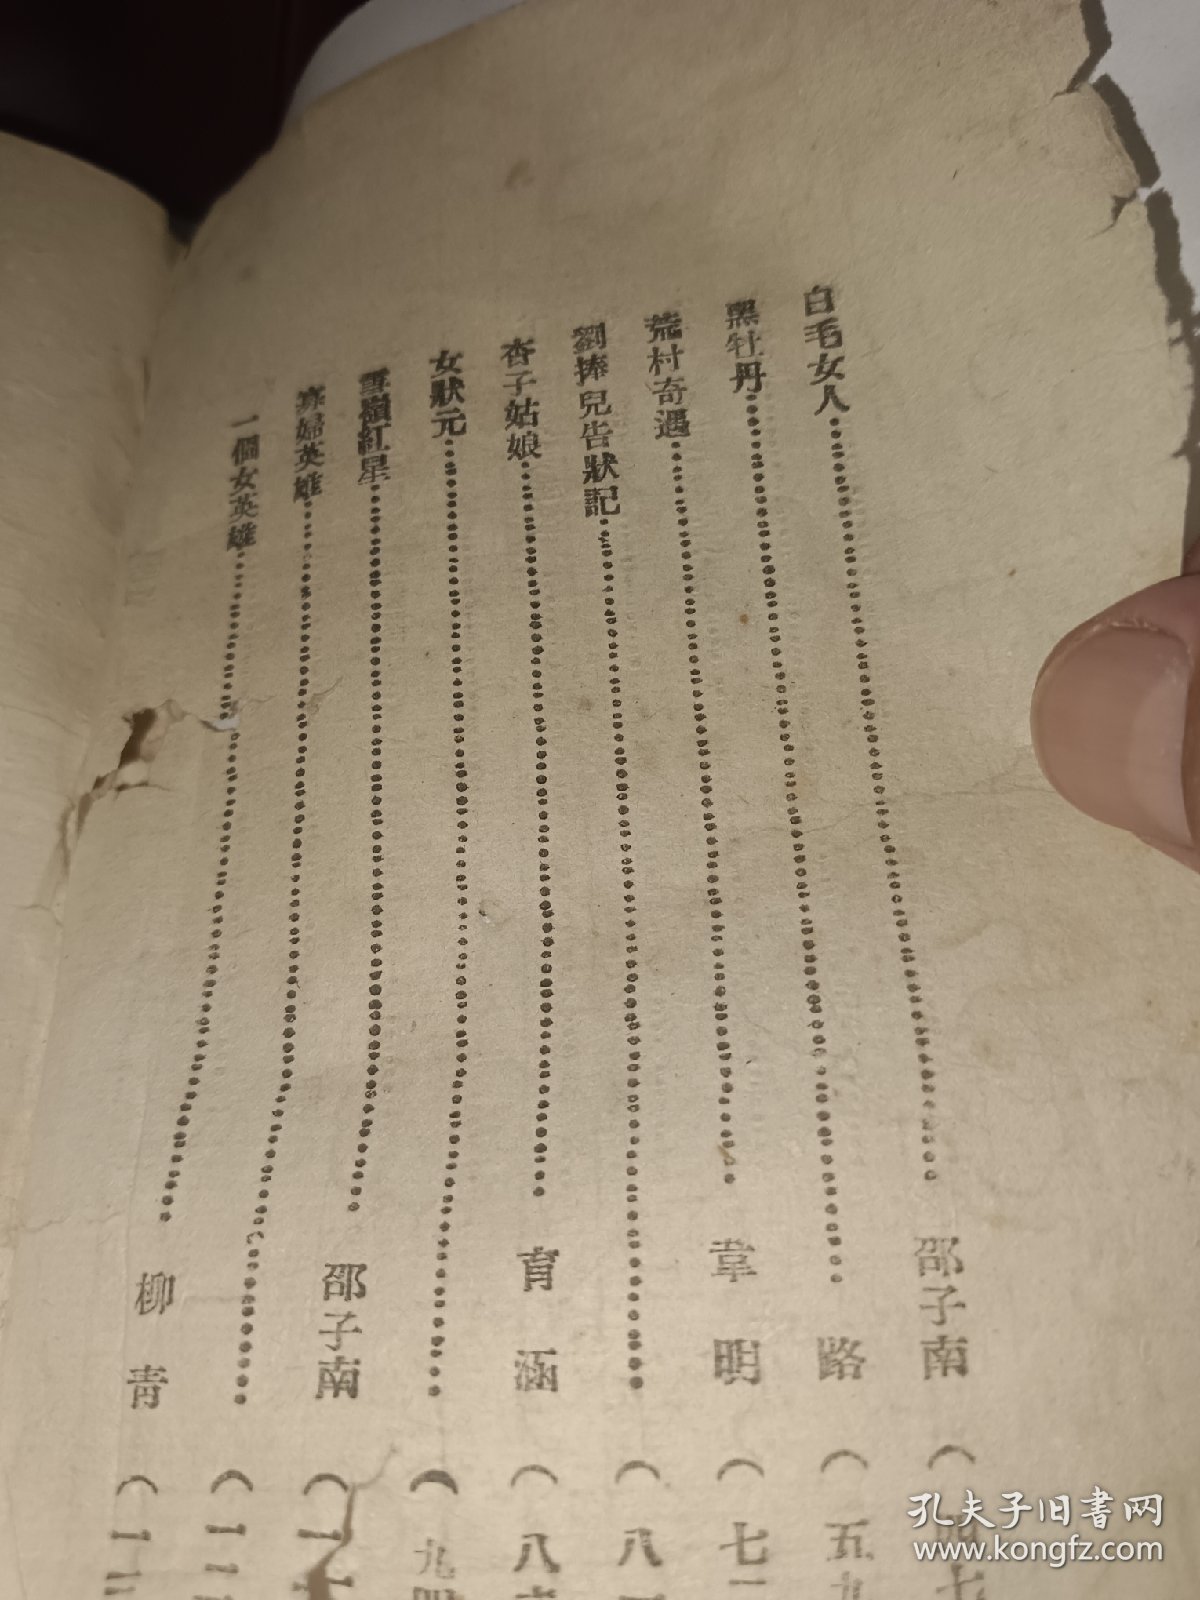 白毛女人……邵子南（四七
黑牡丹……路（五九
荒村奇遇……韋明（七二
劉捧兒告狀記……（八一
杏子姑娘……育涵（八
女狀元……（九四
雪嶺紅星……邵子南（一
寡婦英雄……（一一
一個女英雄……柳青（一二
孔夫子旧书网
www.kongfz.com